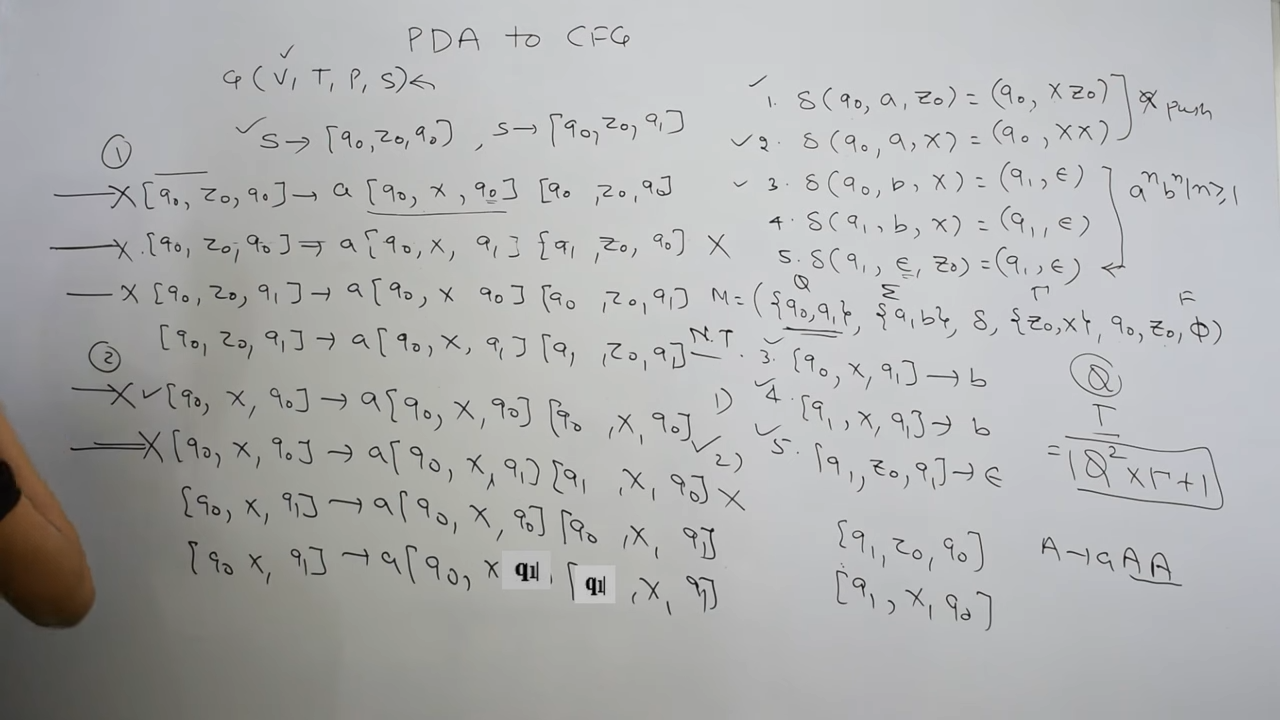 PDA to CFG
G (V, T, P, S) ←
✓ S → [q0, z0, q0] , S → [q0, z0, q1]
①
X [q0, z0, q0] → a [q0, x, q0] [q0, z0, q0]
X [q0, z0, q0] → a [q0, x, q1] [q1, z0, q0] X
X [q0, z0, q1] → a [q0, x q0] [q0, z0, q1]
[q0, z0, q1] → a [q0, x, q1] [q1, z0, q1]
②
X ✓ [q0, x, q0] → a [q0, x, q0] [q0, x, q0]
X [q0, x, q0] → a [q0, x, q1] [q1, x, q0] X
[q0, x, q1] → a [q0, x, q0] [q0, x, q1]
[q0 x, q1] → a [q0, x q1 [q1 , x, q1]
✓ 1. δ(q0, a, z0) = (q0, xz0)
✓ 2. δ(q0, a, x) = (q0, xx)
push
✓ 3. δ(q0, b, x) = (q1, ε)
4. δ(q1, b, x) = (q1, ε)
5. δ(q1, ε, z0) = (q1, ε) ←
aⁿbⁿ|n≥1
Q Σ Γ F
M = ({q0, q1}, {a, b}, δ, {z0, x}, q0, z0, φ)
N.T
✓ 3. [q0, x, q1] → b
1) ✓ 4. [q1, x, q1] → b
✓ 2) ✓ 5. [q1, z0, q1] → ε
Q
Γ
= |Q² × Γ + 1|
[q1, z0, q0]
[q1, x, q0]
A → aAA